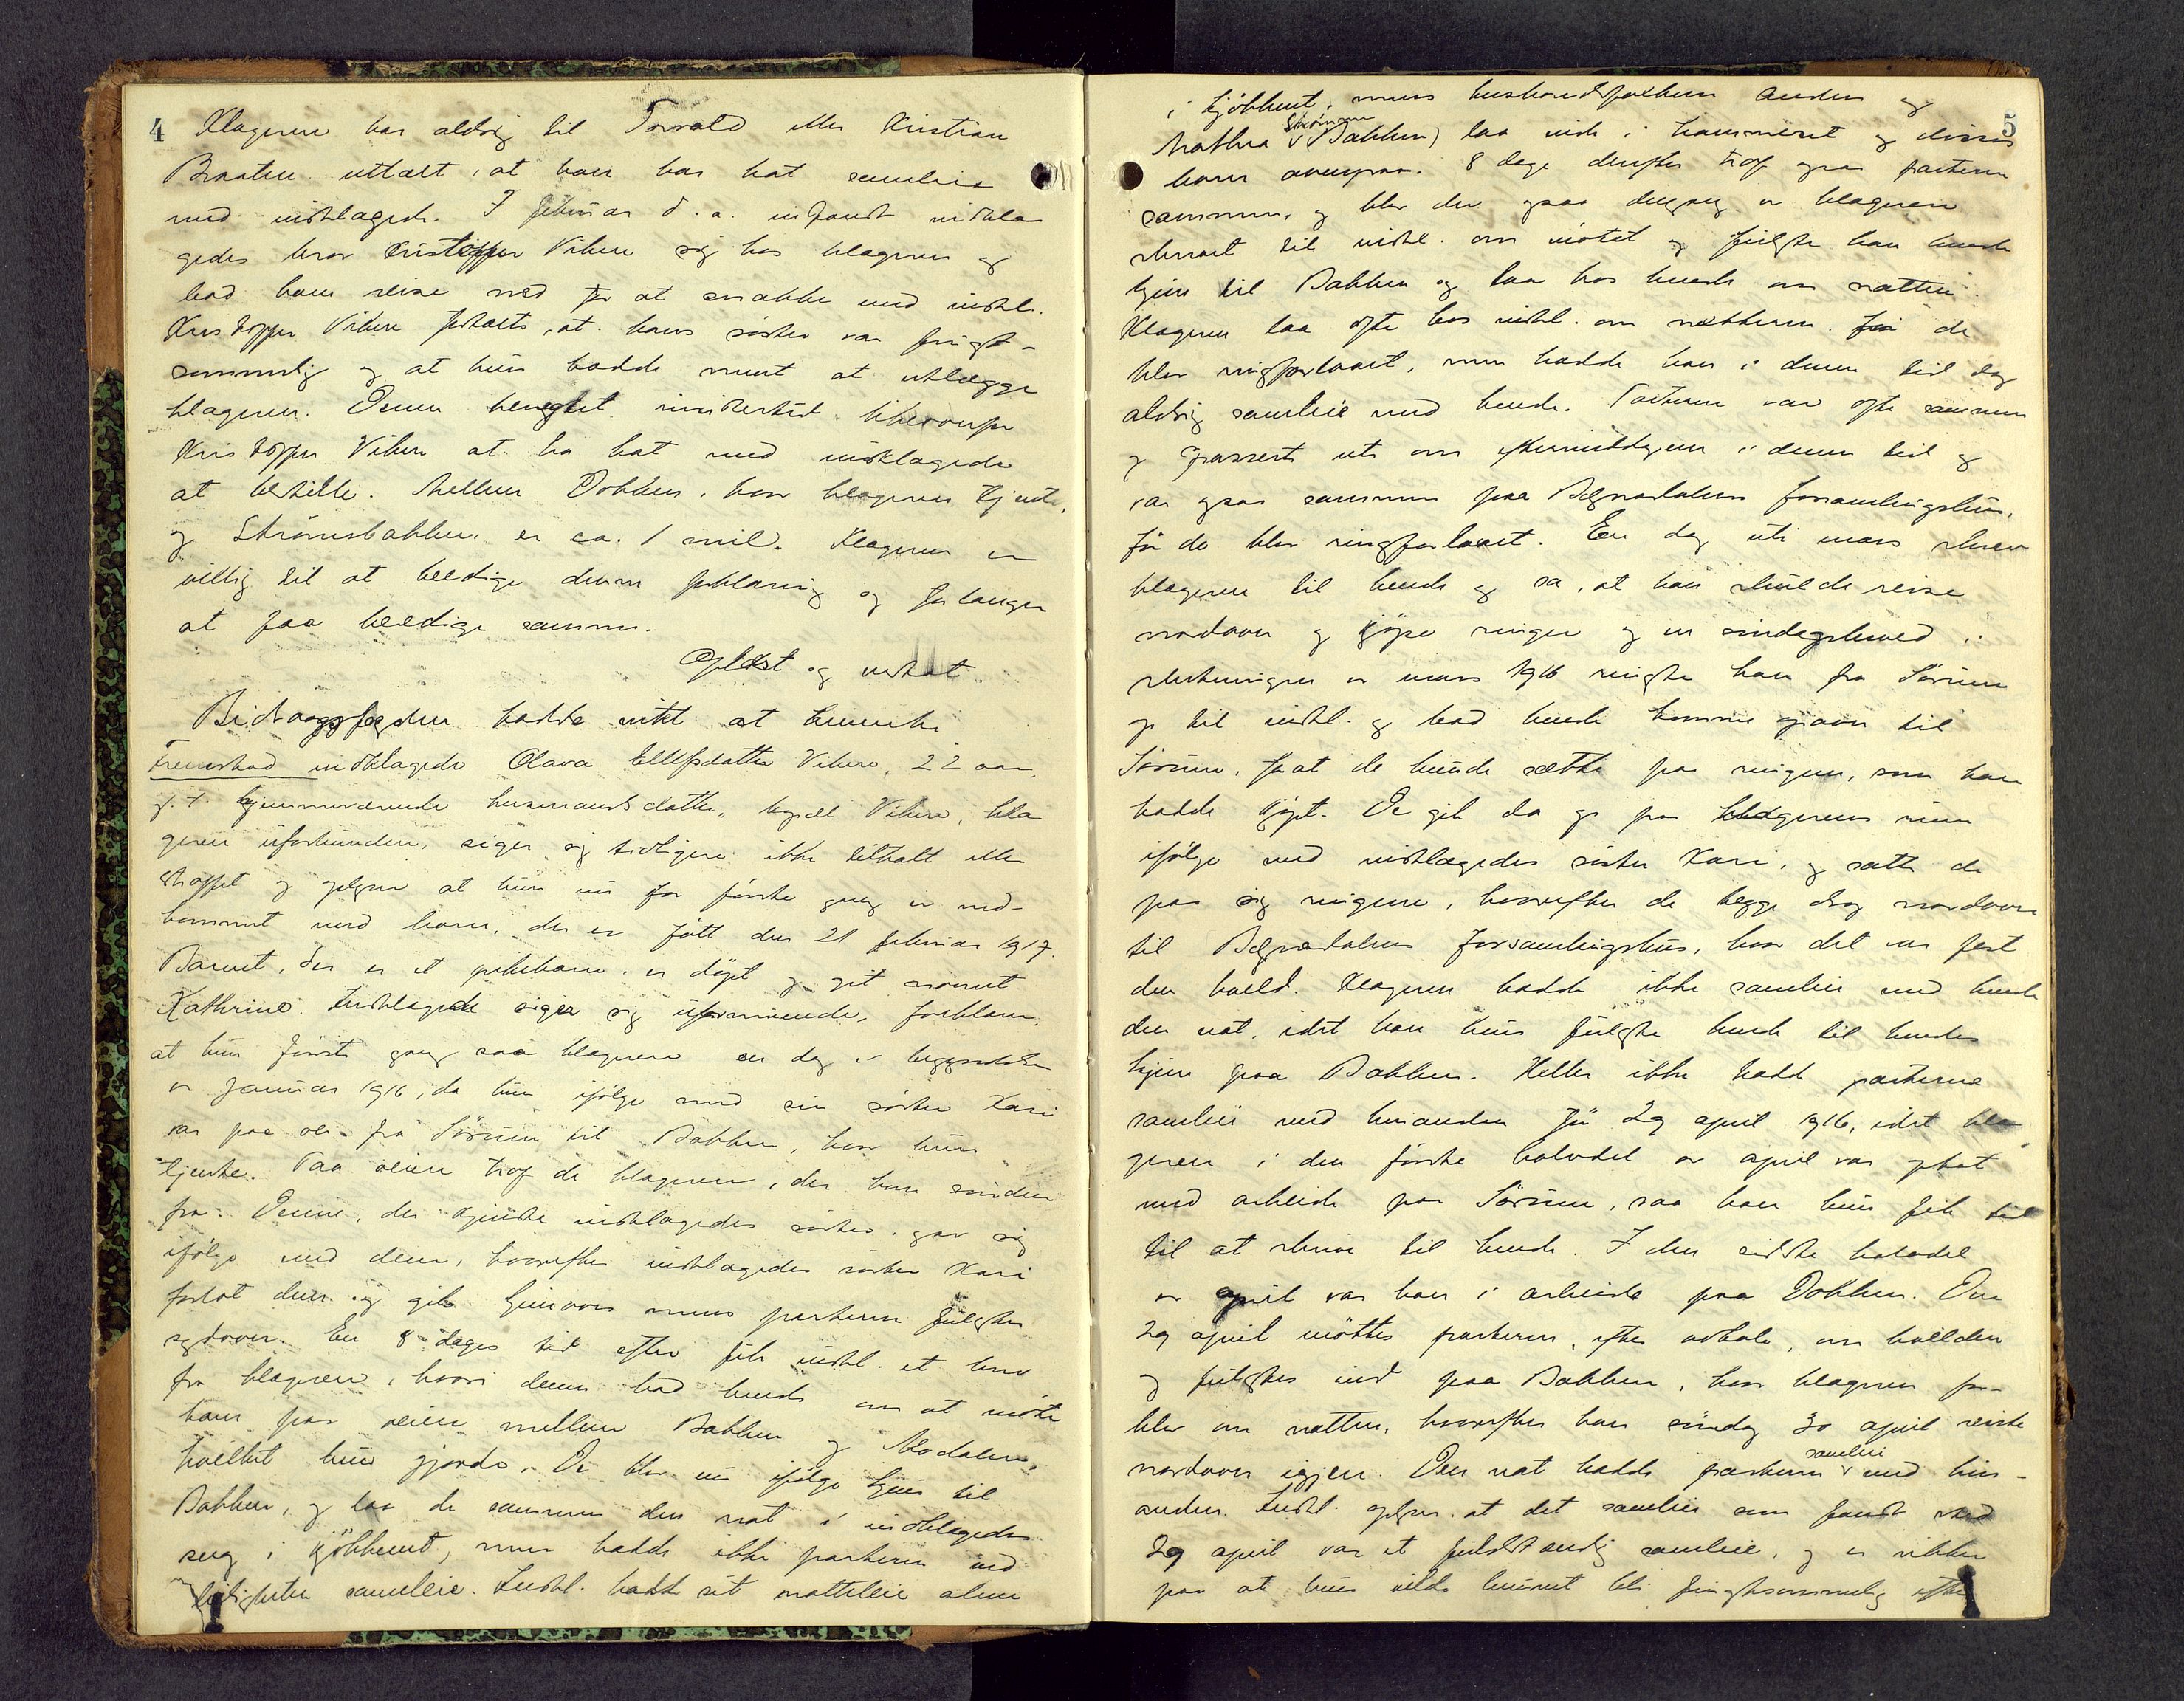 4
Klageren har aldrig til Torvald eller Kristian
Braaten uttalt, at han har hat samleie
med indklagede. I februar d. a. indfandt indkla
gedes bror Kristoffer Vikere sig hos klageren og
bad ham reise ned for at snakke med indkl.
Kristoffer Vikere fortalte, at hans søster var frugt-
sommelig og at hun hadde ment at utlægge
klageren. Denne benegtet imidlertid likeoverfor
Kristoffer Vikere at ha hat med indklagede
at bestille. Mellem Dokken, hvor klageren tjente,
og Strømsbakken er ca. 1 mil. Klageren er
villig til at beedige denne forklaring og forlanger
at faa beedige samme.
Oplæst og vedtat.
Bidragsfogden hadde intet at bemerke
Fremstod indklagede Olava Ellefsdatter Vikere, 22 aar,
p. t. hjemmeværende husmandsdatter, bygsel Vikere, kla
geren uforbunden, siger sig tidligere ikke tiltalt eller
straffet og oplyser at hun nu for første gang er ned-
kommet med barn, der er født den 21 februar 1917.
Barnet, der er et pikebarn, er døpt og git navnet
Kathrine. Indklagede siger sig uformuende, forklarer,
at hun første gang saa klageren en dag i begyndelsen
av januar 1916, da hun ifølge med sin søster Kari
var paa vei fra Sørum til Bakken, hvor hun
tjente. Paa veien traf de klageren, der kom søndenfra
fra. Denne, der kjendte indklagedes søster, gav sig
ifølge med dem, hvorefter indklagedes søster Kari
forlot dem og gik hjemover mens parterne fulgtes
sydover. En 8 dages tid efter fik indkl. et brev
fra klageren, hvori denne bad hende om at møte
ham paa veien mellem Bakken og Modalen,
hvilket hun gjorde. De blev nu ifølge hjem til
Bakken, og laa de sammen den nat i indklagedes
seng i kjøkkenet, men hadde ikke parterne ved
leiligheten samleie. Indkl. hadde sit natteleie alene
5
i kjøkkenet, mens husbondsfolkene Anders og
Mathea Strømmen (Bakken) laa inde i kammerset og disses
barn ovenpaa. 8 dage derefter traf ogsaa parterne
sammen, og blev der ogsaa dengang av klageren
skrevet til indkl. om møtet og fulgte han hende
hjem til Bakken og laa hos hende om natten.
Klageren laa ofte hos indkl. om nætterne før de
blev ringforlovet, men hadde han i denne tid dog
aldrig samleie med hende. Parterne var ofte sammen
og spaserte ute om eftermiddagene i denne tid og
var ogsaa sammen paa Begnadalens forsamlingshus,
før de blev ringforlovet. En dag uti mars skrev
klageren til hende og sa, at han skulde reise
nordover og kjøpe ringer og en søndagskveld i
slutningen av mars 1916 ringte han fra Sørum
op til indkl. og bad hende komme opover til
Sørum, for at de kunde sætte paa ringene, som han
hadde kjøpt. De gik da op paa klagerens rum
ifølge med indklagedes søster Kari, og satte de
paa sig ringene, hvorefter de begge drog nordover
til Begnadalens forsamlingshus, hvor det var fest
den kveld. Klageren hadde ikke samleie med hende
den nat, idet han kun fulgte hende til hendes
hjem paa Bakken. Heller ikke hadde parterne
samleie med hinanden før 29 april 1916, idet kla
geren i den første halvdel av april var optat
med arbeide paa Sørum, saa han kun fik tid
til at skrive til hende. I den sidste halvdel
av april var han i arbeide paa Dokken. Den
29 april møttes parterne, efter avtale, om kvelden
og fulgtes ind paa Bakken, hvor klageren for-
blev om natten, hvorefter han søndag 30 april reiste
nordover igjen. Den nat hadde parterne samleie med hin-
anden. Indkl. oplyser at det samleie som fandt sted
29 april var et fuldstændig samleie, og er sikker
paa at hun vilde kunnet bli frugtsommelig efter